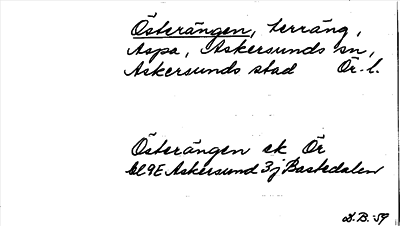 Österängen, terräng,
Aspa, Askersunds sn,
Askersunds stad Ör. l.
Österängen ek Ör
bl 9E Askersund 3j Bastedalen
D.B. 59